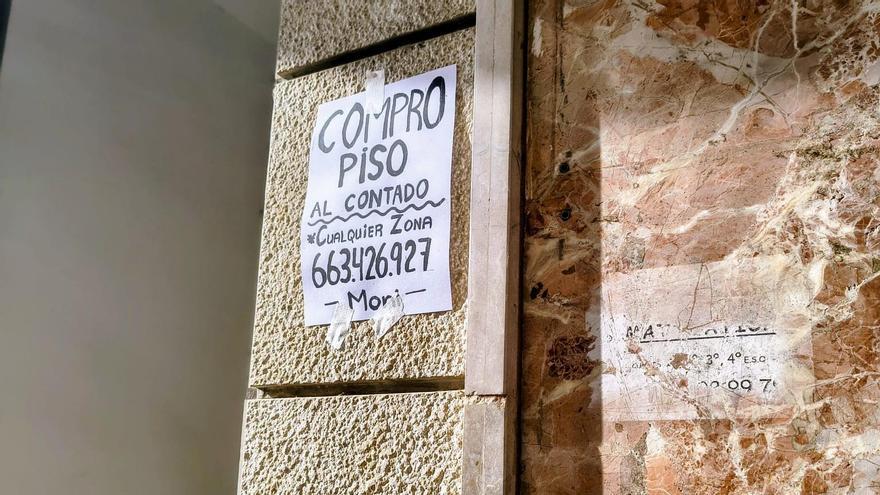 COMPRO
PISO
AL CONTADO
*CUALQUIER ZONA
663.426.927
3°, 4° E.S.O